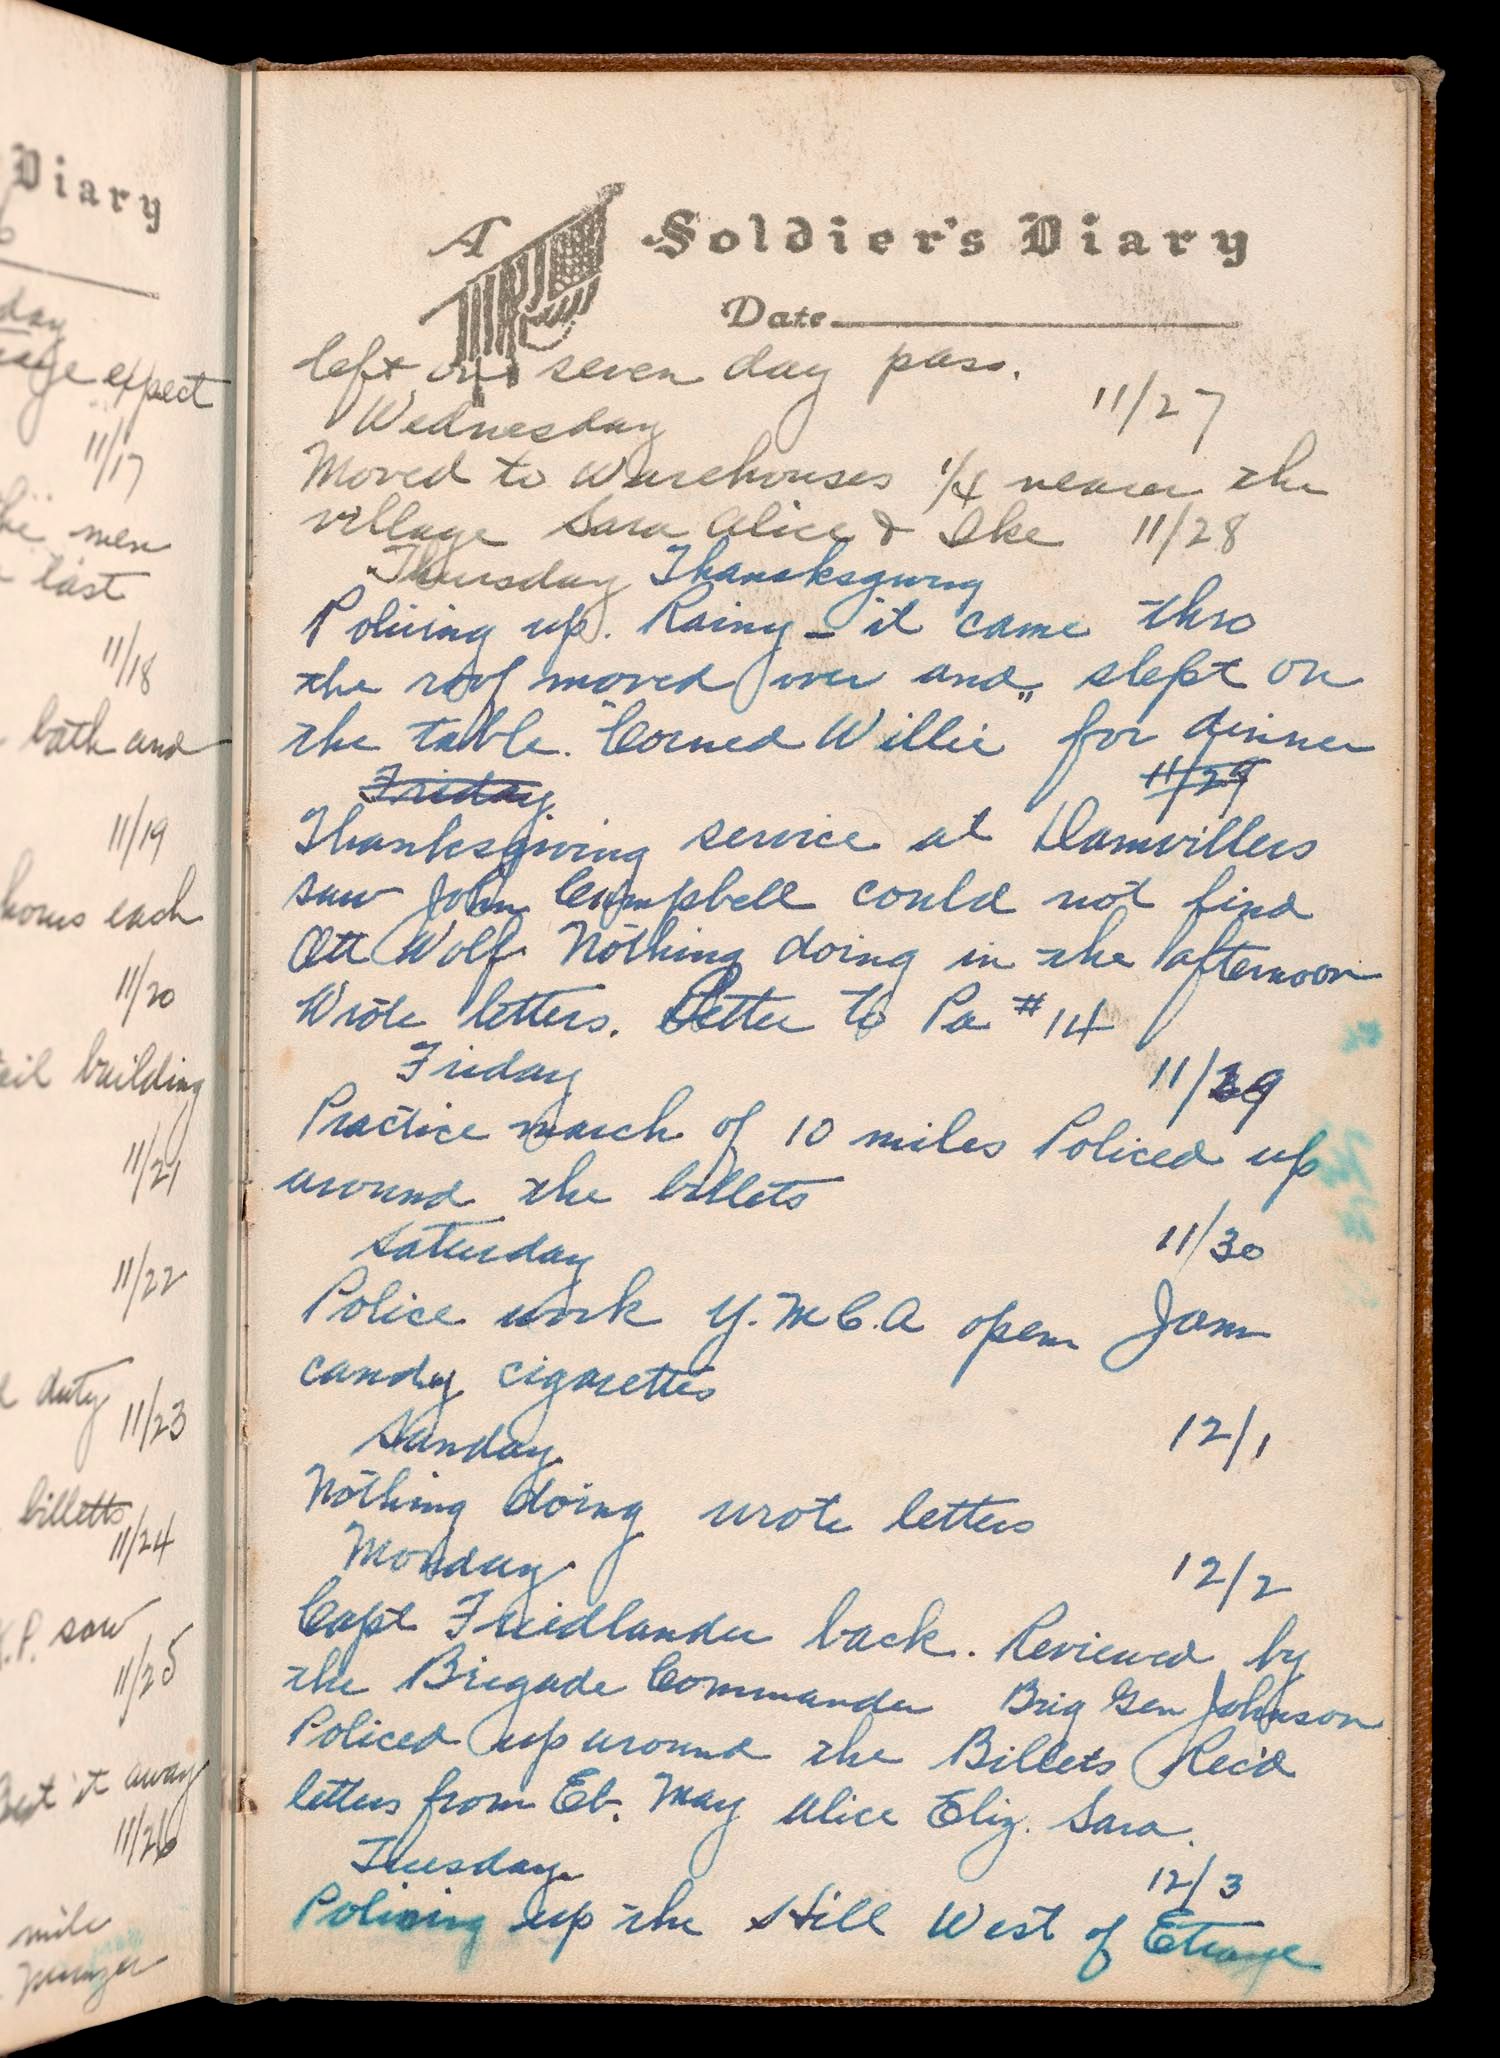 Diary
day
expect
11/17
men
last
11/18
bath and
11/19
horns each
11/20
building
11/21
11/22
duty
11/23
billetts
11/24
K.P. saw
11/25
it away
11/26
mile
A Soldier's Diary
Date
left on seven day pass.
Wednesday 11/27
Moved to Warehouses 1/4 nearer the
village Sara Alice & Ike 11/28
Thursday Thanksgiving
Policing up. Rainy - it came thro
the roof moved over and slept on
the table. "Corned Willie" for dinner
Friday 11/29
Thanksgiving service at Damvillers
saw John Campbell could not find
Ott Wolf. Nothing doing in the afternoon
Wrote letters. Letter to Pa #14
Friday 11/29
Practice march of 10 miles Policed up
around the billets
Saturday 11/30
Police work Y.M.C.A open Jam
candy cigarettes
Sunday 12/1
Nothing doing wrote letters
Monday 12/2
Capt Friedlander back. Reviewed by
the Brigade Commander Brig Gen Johnson
Policed up around the Billets Rec'd
letters from Eb. May Alice Eliz. Sara.
Tuesday 12/3
Policing up the Hill West of Etraye